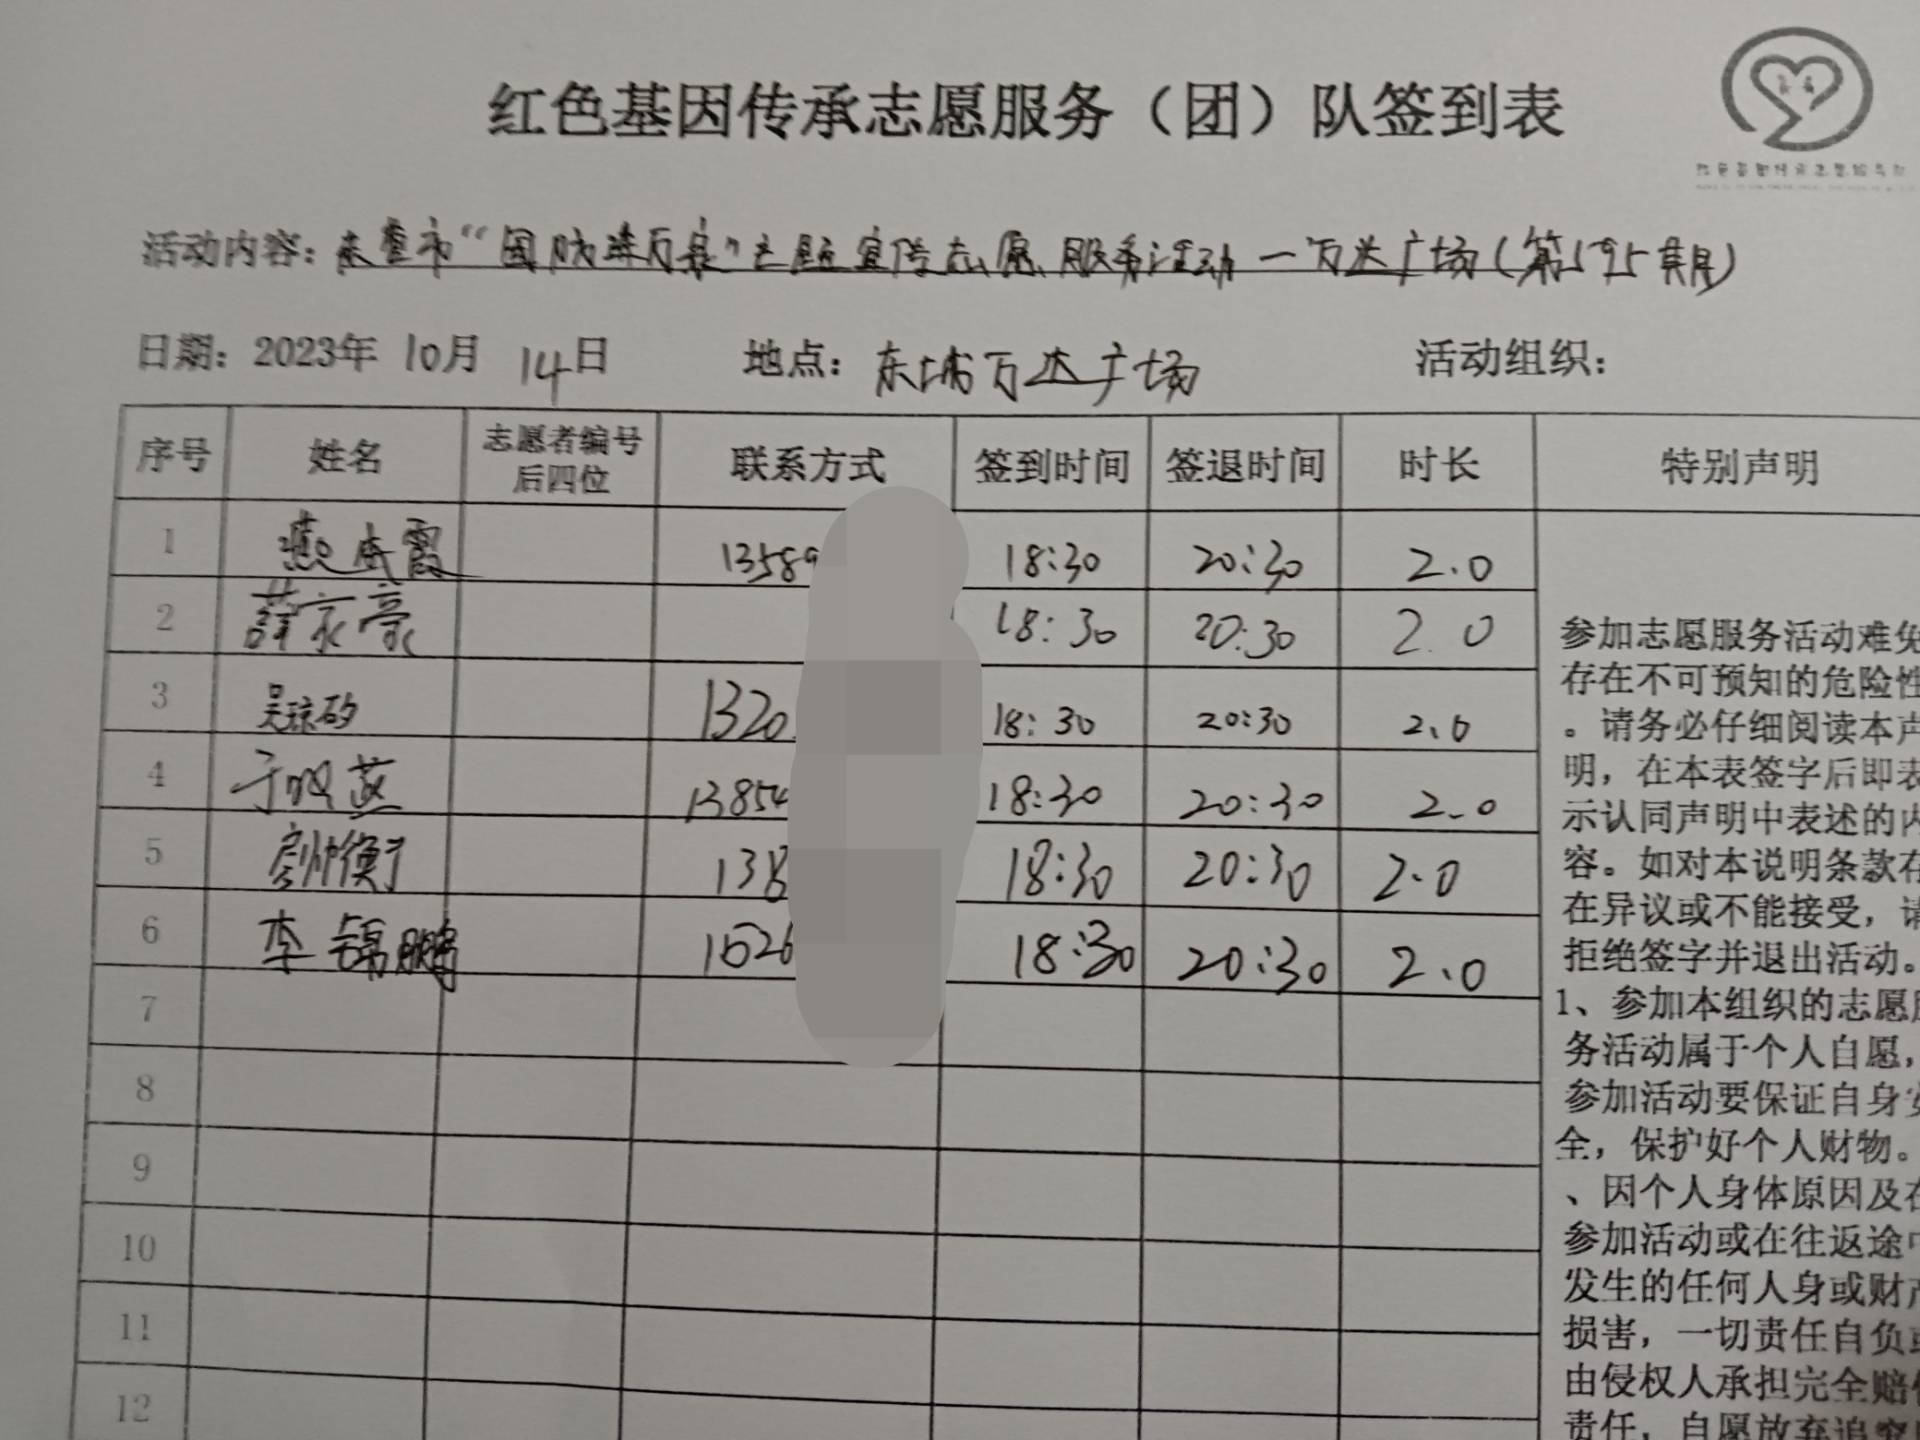 红色基因传承志愿服务（团）队签到表
活动内容：东营市“国防进万家”主题宣传志愿服务活动—万达广场（第595期）
日期：2023年 10月 14日 地点：东城万达广场 活动组织：
序号 姓名 志愿者编号后四位 联系方式 签到时间 签退时间 时长 特别声明
1 燕霞 13589 18:30 20:30 2.0
2 薛家豪 18:30 20:30 2.0
3 吴琼 1320 18:30 20:30 2.0
4 于燕 13854 18:30 20:30 2.0
5 138 18:30 20:30 2.0
6 李锦鹏 1526 18:30 20:30 2.0
7
8
9
10
11
12
参加志愿服务活动难免
存在不可预知的危险性
。请务必仔细阅读本声
明，在本表签字后即表
示认同声明中表述的内
容。如对本说明条款存
在异议或不能接受，请
拒绝签字并退出活动。
1、参加本组织的志愿服
务活动属于个人自愿，
参加活动要保证自身安
全，保护好个人财物。
、因个人身体原因及在
参加活动或在往返途中
发生的任何人身或财产
损害，一切责任自负或
由侵权人承担完全赔偿
责任，自愿放弃追究